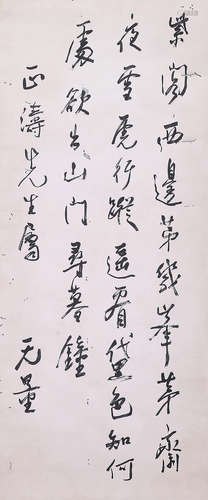 紫閣西邊第幾峯茅齋
夜雪虎行蹤遙看黛色知何
處欲出山門尋暮鐘
正濤先生屬
无量